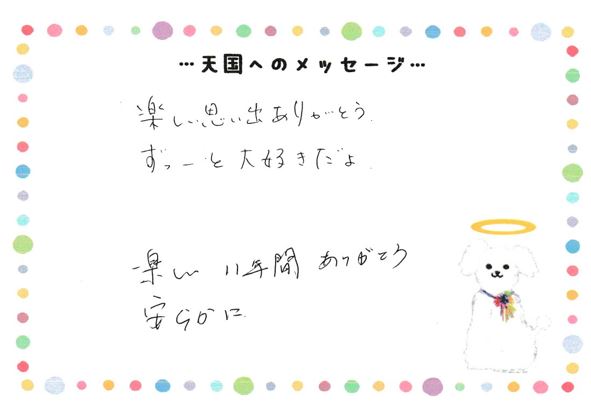 …天国へのメッセージ…
楽しい思い出ありがとう.
ずっーと大好きだよ.
楽しい 11年間 ありがとう
安らかに.